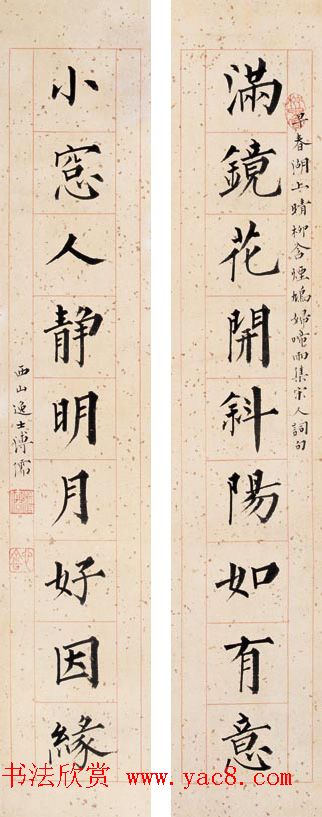 滿鏡花開斜陽如有意
早春湖上晴柳含煙鳩婦啼雨集宋人詞句
小窓人静明月好因緣
西山逸士溥儒
书法欣赏 www.yac8.com